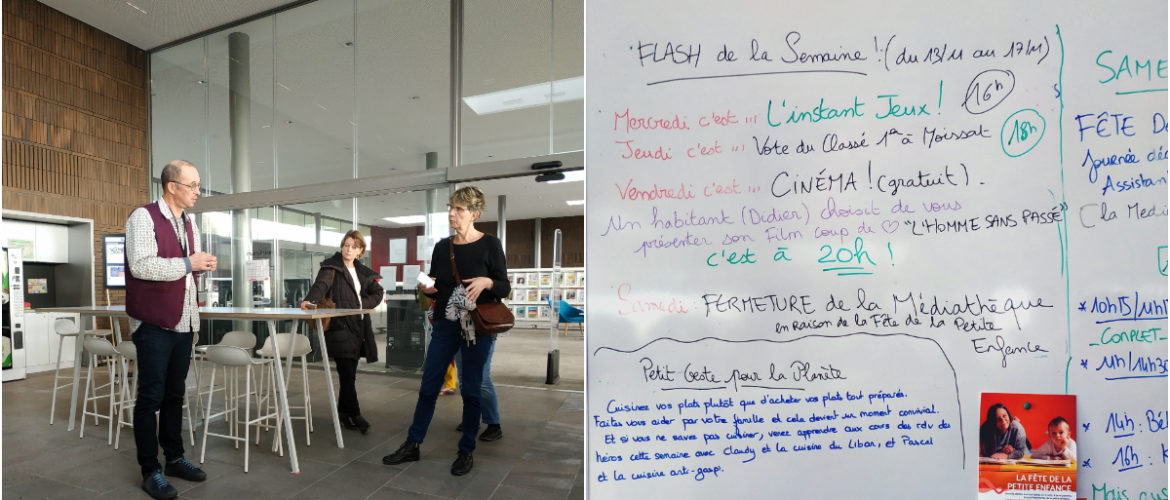 FLASH de la Semaine ! (du 13/11 au 17/11)
Mercredi c'est ... L'instant Jeux ! 16h
Jeudi c'est ... Vote du Classé 1er à Moissat 18h
Vendredi c'est ... CINÉMA ! (gratuit).
Un habitant (Didier) choisit de vous
présenter son Film coup de ♡ "L'HOMME SANS PASSÉ"
c'est à 20h !
Samedi : FERMETURE de la Médiathèque
en raison de la Fête de la Petite
Enfance
Petit Geste pour la Planète
Cuisinez vos plats plutôt que d'acheter vos plats tout préparés.
Faites vous aider par votre famille et cela devient un moment convivial.
Et si vous ne savez pas cuisiner, venez apprendre aux cours des rdv du
héros cette semaine avec Claudy et la cuisine du Liban, et Pascal
et la cuisine anti-gasp.
SAME
FÊTE De
Journée déc
Assistan
(la Medi
* 10h15/11h
- COMPLET -
* 11h/11h30
* 14h : Bé
* 16h : K
Mais aus
LA FÊTE DE LA
PETITE ENFANCE